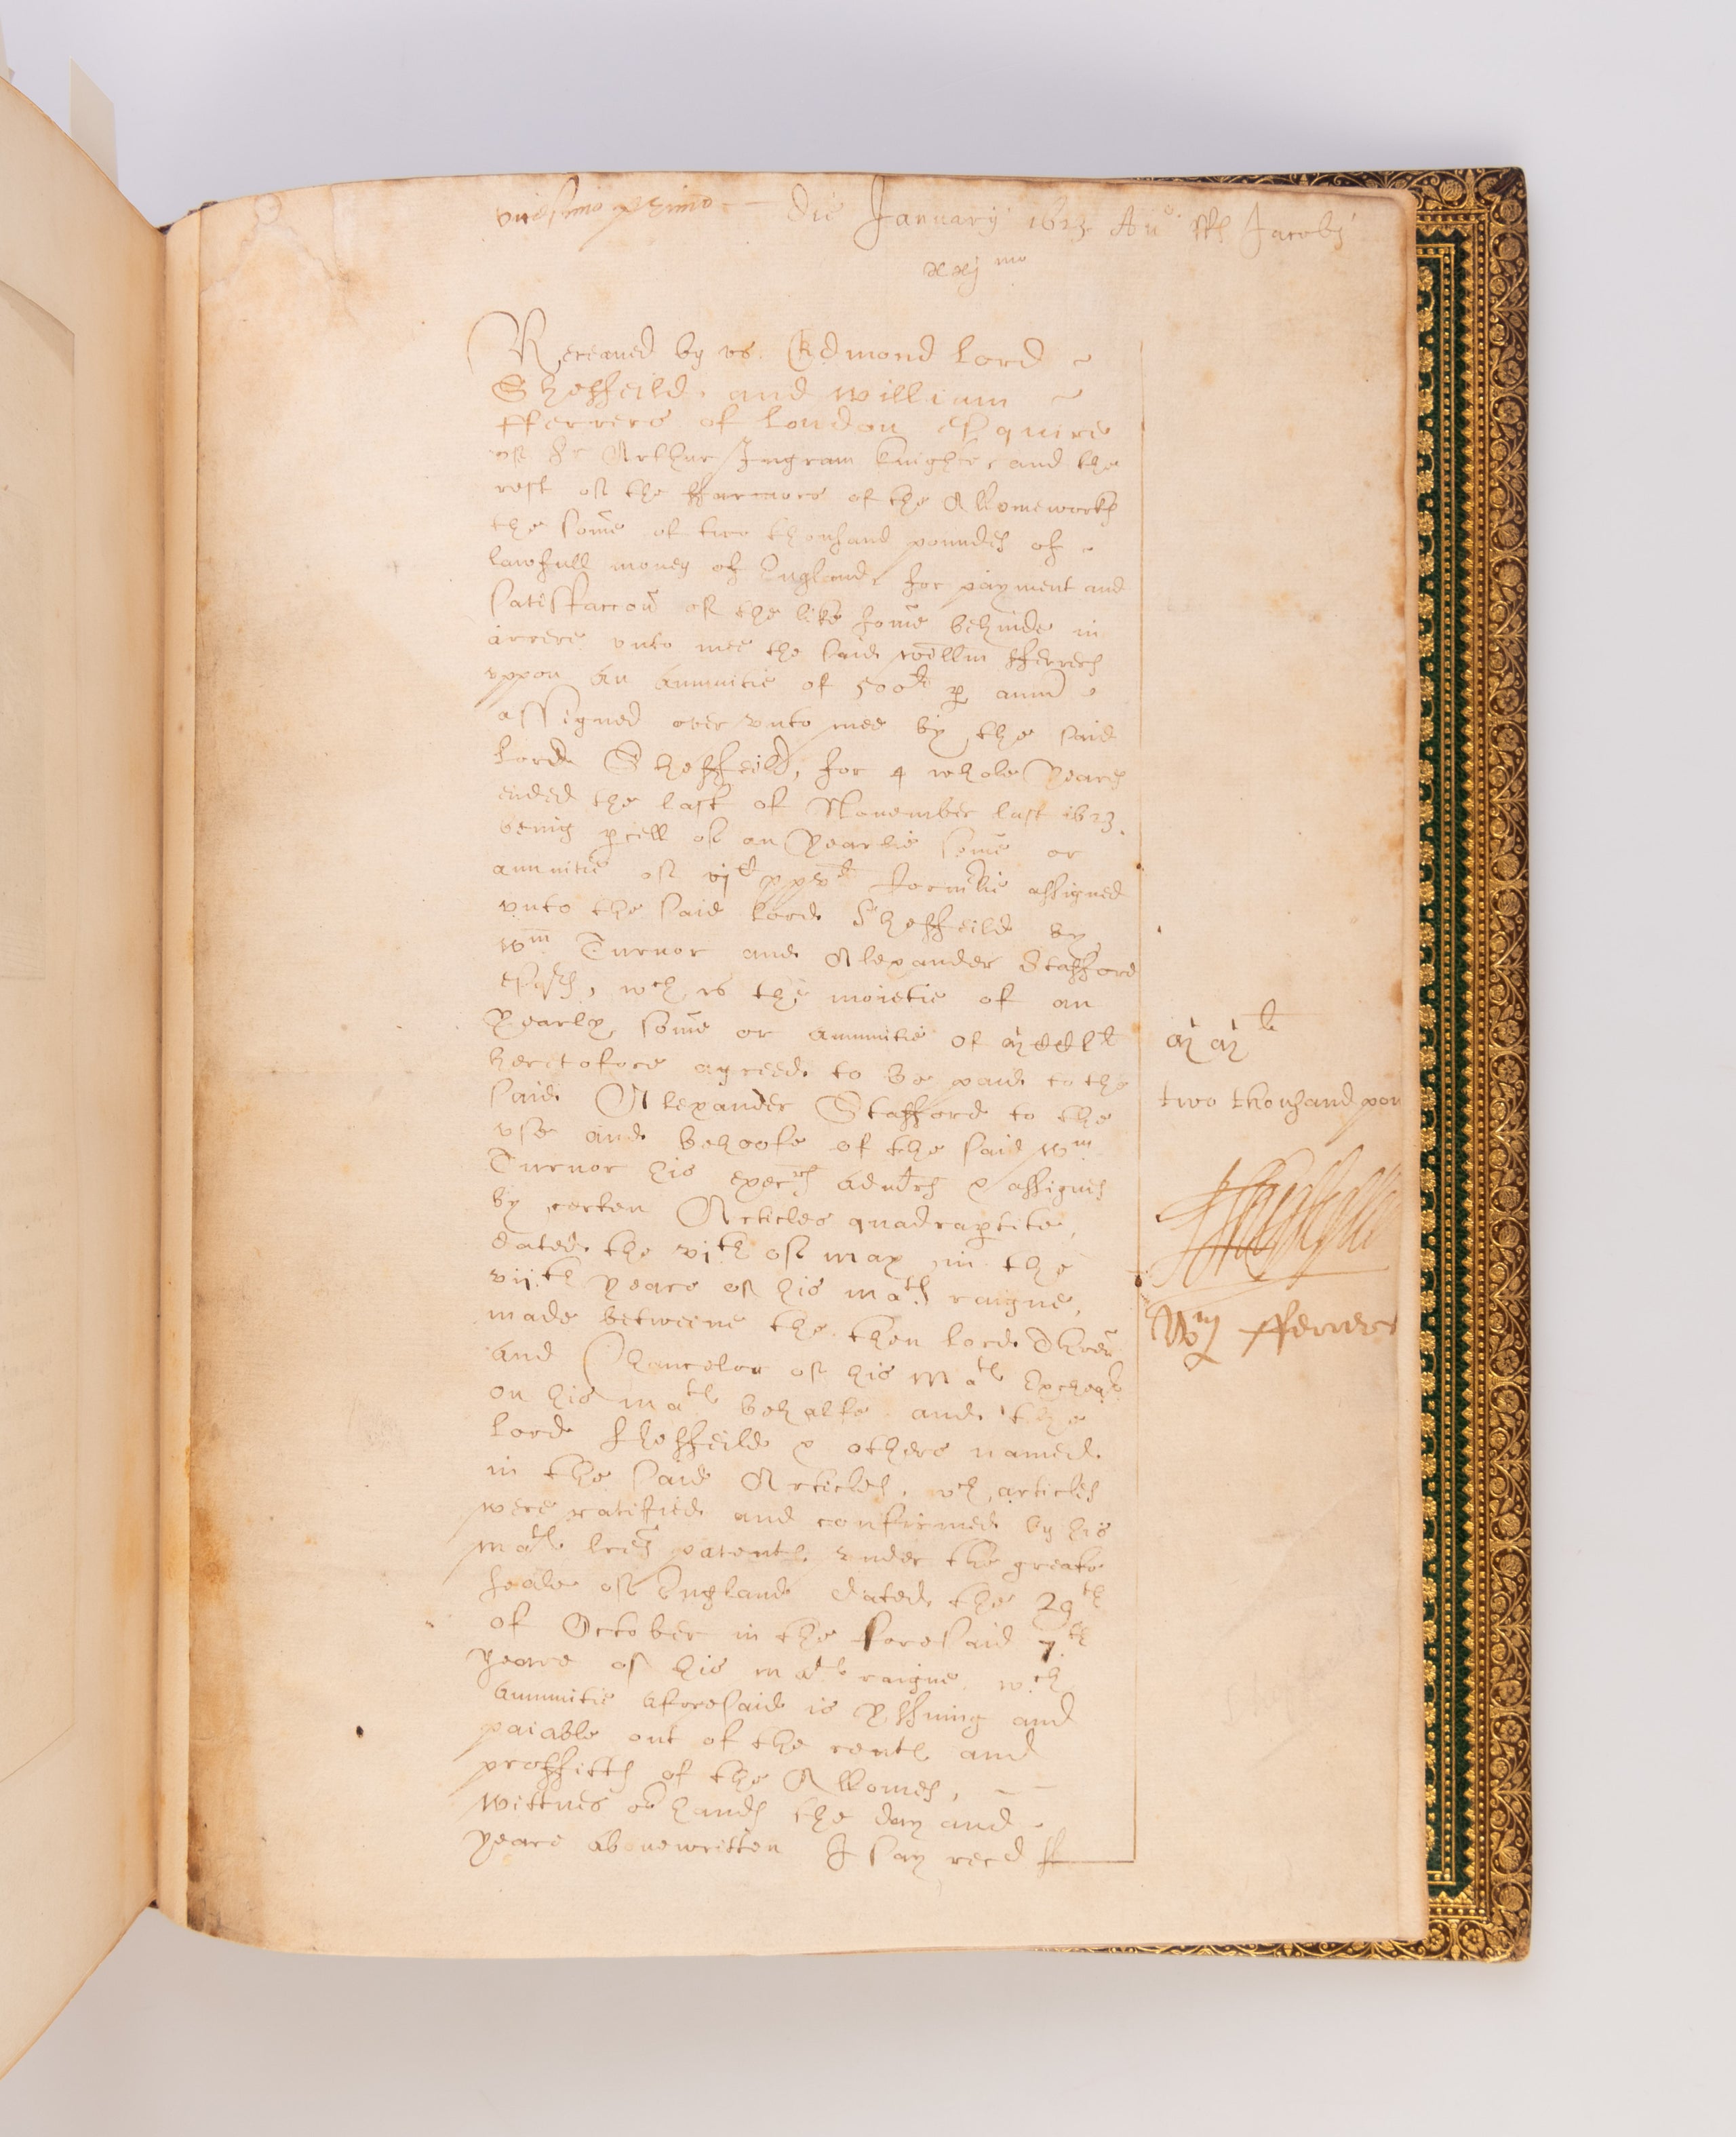 vicesimo primo — die January 1623 Ano Rs Jacobi
xxj mo
Receaued by vs Edmond Lord
Sheffeild and William
fferrers of London esquire
of Sr Arthur Ingram knight and the
rest of the ffarmors of the Allomeworks
the some of two thousand poundes of
lawfull money of England for payment and
satisfaccon of the like some behinde in
arrere vnto mee the said Willm fferrers
vppon an annuitie of 500li p annu
assigned over vnto mee by the said
lord Sheffeild, for 4 whole yeares
ended the last of November last 1623.
being pcell of an yearlie some or
annuitie of formlie assigned
vnto the said Lord Sheffeild by
Wm Turnor and Alexander Stafford
esqrs, wch is the moietie of an
yearly some or annuitie of
heretofore agreed to be paid to the
said Alexander Stafford to the
vse and behoofe of the said Wm
Turnor his execrs admrs & assignes
by certen Articles quadraptite,
dated the vjth of may in the
vijth yeare of his mats raigne,
made betweene the then lord Threr
and Chancelor of his Mats Excheqr
on his mats behalfe and the
Lord Sheffeild & others named
in the said Articles, wch articles
were ratified and confirmed by his
mats lres patents vnder the greate
seale of England dated the 29th
of October in the foresaid 7th
yeare of his mats raigne wch
annuitie aforesaid is yssuing and
paiable out of the rents and
proffitts of the Allomes,
wittnes or hands the day and
yeare abouewritten I say recd
two thousand pou
Wm fferrers